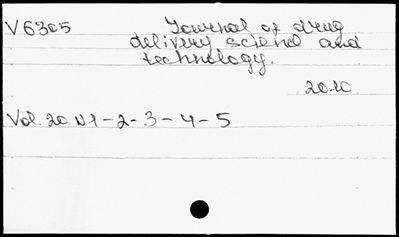 V6305 Journal of drug
delivery science and
technology.
2010
Vol. 20 N1-2-3-4-5